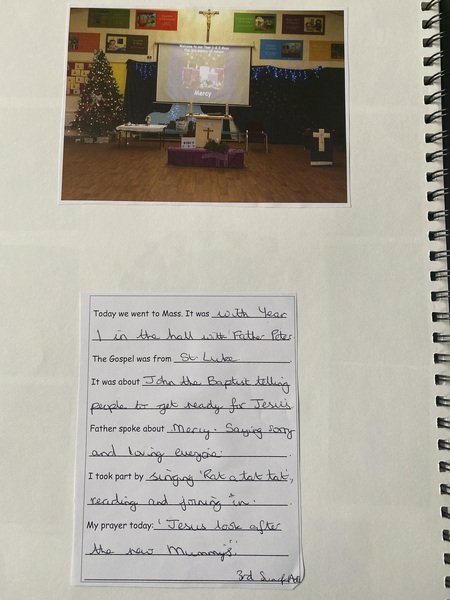 Welcome to our Year 1 & 2 Mass
Mercy
Today we went to Mass. It was with Year
1 in the hall with Father Peter
The Gospel was from St Luke
It was about John the Baptist telling
people to get ready for Jesus
Father spoke about Mercy. Saying sorry
and loving everyone.
I took part by singing 'Rat a tat tat',
reading and joining in.
My prayer today: 'Jesus look after
the new Mummys'.
3rd Sun of Ad